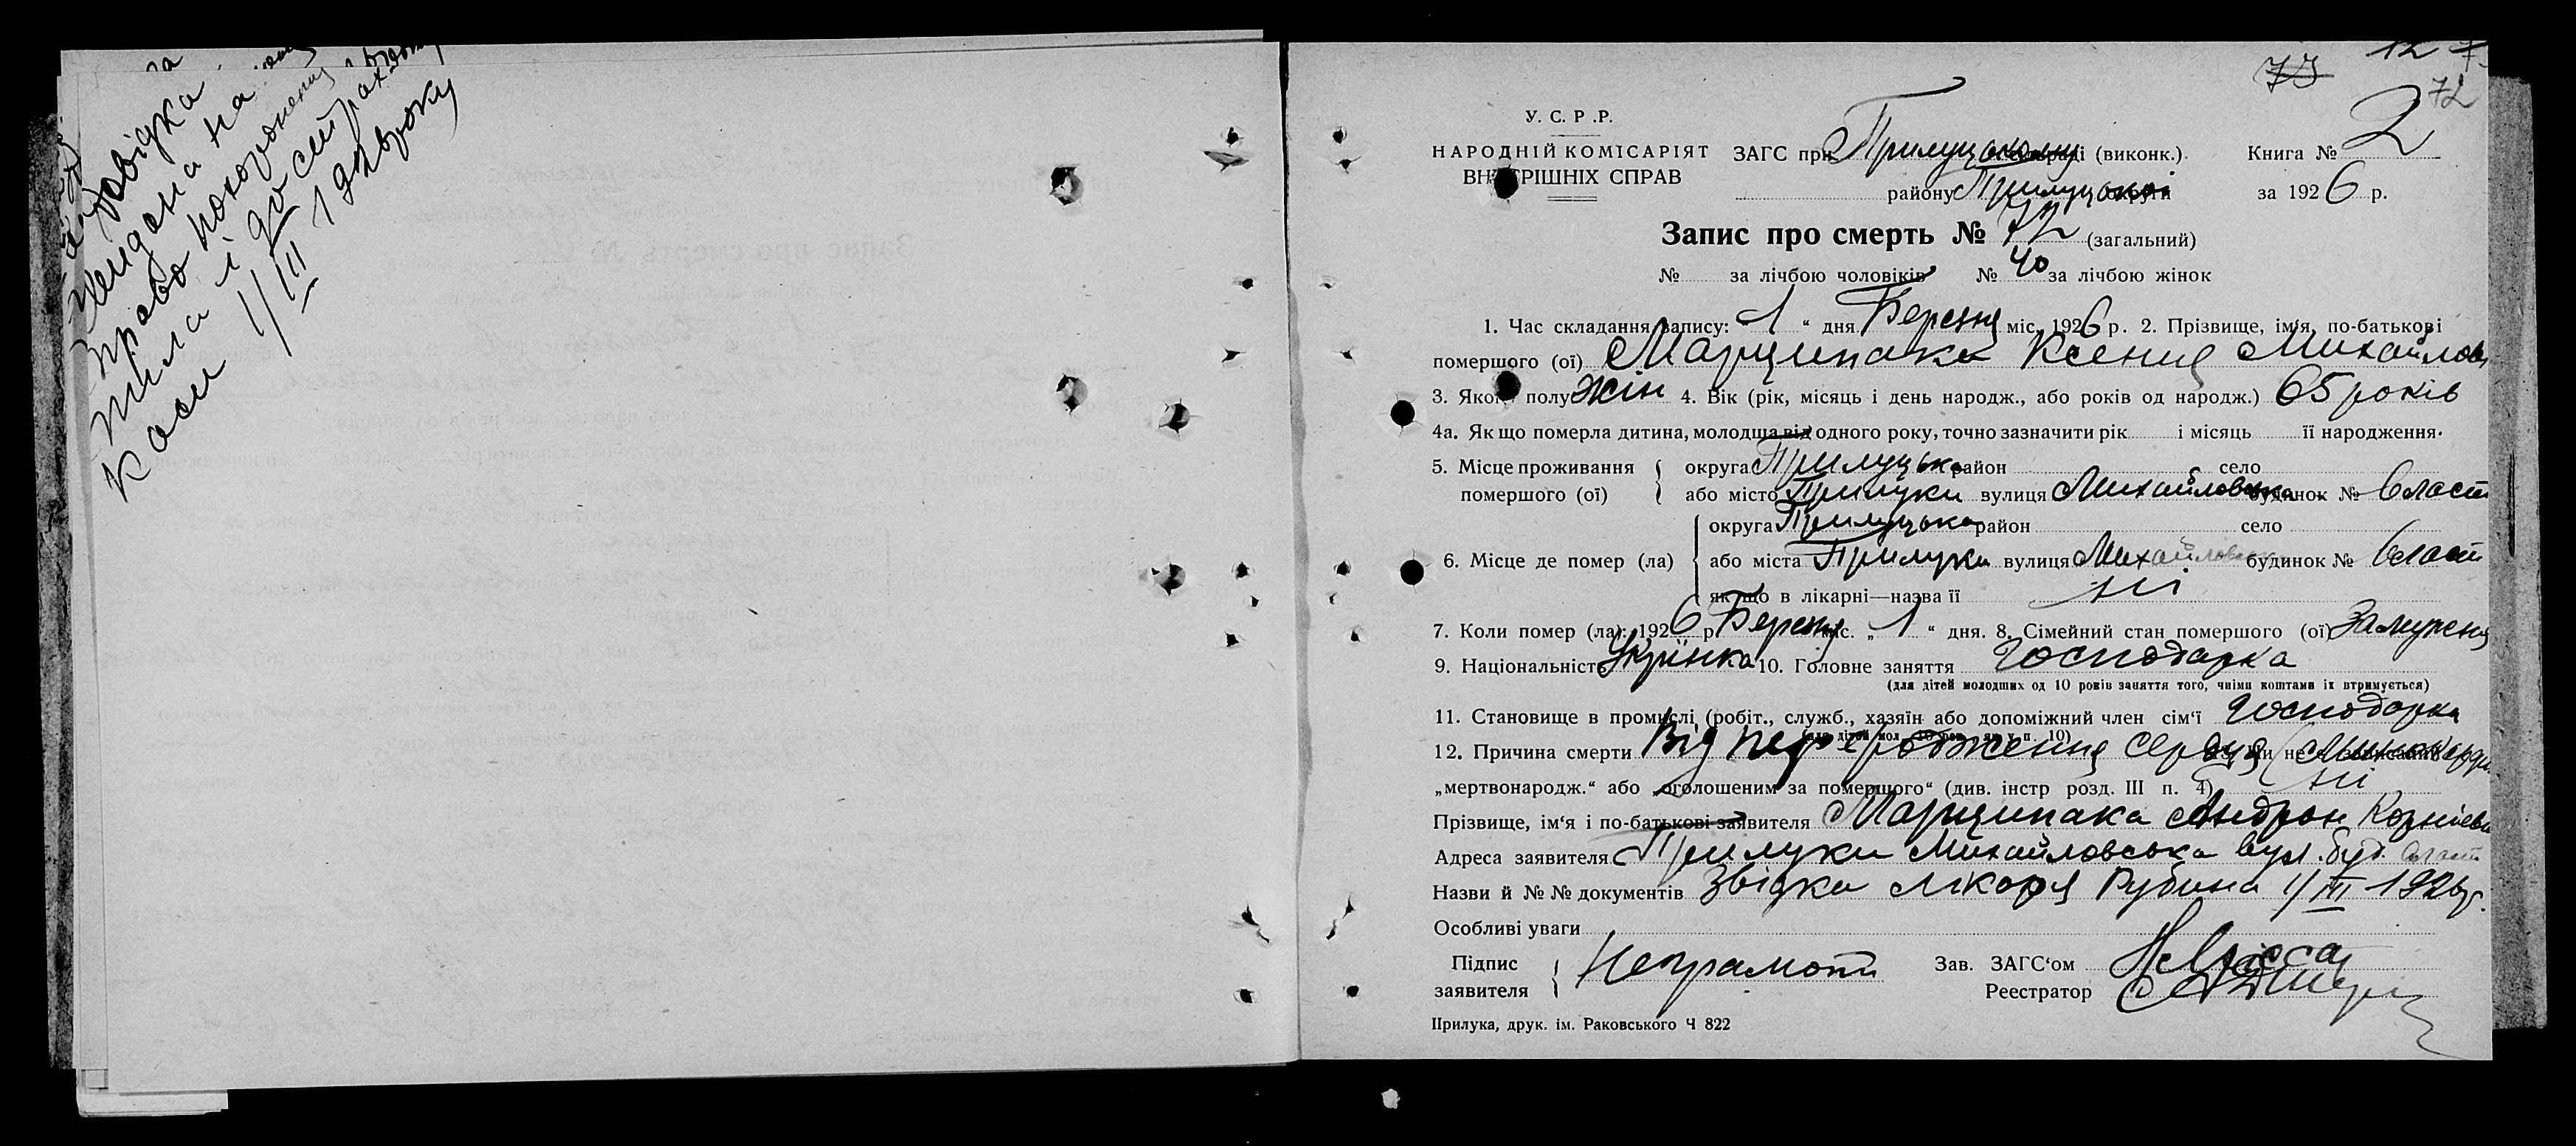 довідка
видана на
право похоронения
тіла і до страх
каси 1/III 1926 року
12
73
72
У. С. Р. Р.
НАРОДНІЙ КОМІСАРІЯТ
ВНУТРІШНІХ СПРАВ
ЗАГС при Прилуцькому раді (виконк.)
району Прилуцької округи
Книга № 2
за 1926 р.
Запис про смерть № 72 (загальний)
№ за лічбою чоловіків № 40 за лічбою жінок
1. Час складання запису: „1“ дня Березня міс. 1926 р. 2. Прізвище, ім'я, по-батькові
помершого (ої) Марципака Ксения Михайлов
3. Якого полу жін 4. Вік (рік, місяць і день народж., або років од народж.) 65 років
4а. Як що померла дитина, молодша від одного року, точно зазначити рік і місяць її народження.
5. Місце проживання помершого (ої) округа Прилуцька район село
або місто Прилуки вулиця Михайловська будинок № власн
6. Місце де помер (ла) округа Прилуцька район село
або міста Прилуки вулиця Михайловська будинок № власн
як що в лікарні—назва її ні
7. Коли помер (ла): 1926 р. Березня міс. „1“ дня. 8. Сімейний стан помершого (ої) Замужня
9. Національність Укрїнка 10. Головне заняття Господарка
(для дітей молодших од 10 років заняття того, чиїми коштами їх втримується)
11. Становище в промислі (робіт., служб., хазяїн або допоміжний член сім'ї Господарка
(для дітей мол. 10 рок. як у п. 10)
12. Причина смерти Від переродження серця 13. Чи не є записаний
„мертвонародж.“ або „оголошеним за помершого“ (див. інстр розд. III п. 4) ні
Прізвище, ім'я і по-батькові заявителя Марципака Андрон Корнієв
Адреса заявителя Прилуки Михайловська вул. буд. власн
Назви й №№ документів Звідка лікаря Рубина 1/III 1926 р.
Особливі уваги
Підпис заявителя Неграмотн
Зав. ЗАГС'ом
Реестратор
Прилука, друк. ім. Раковського Ч 822